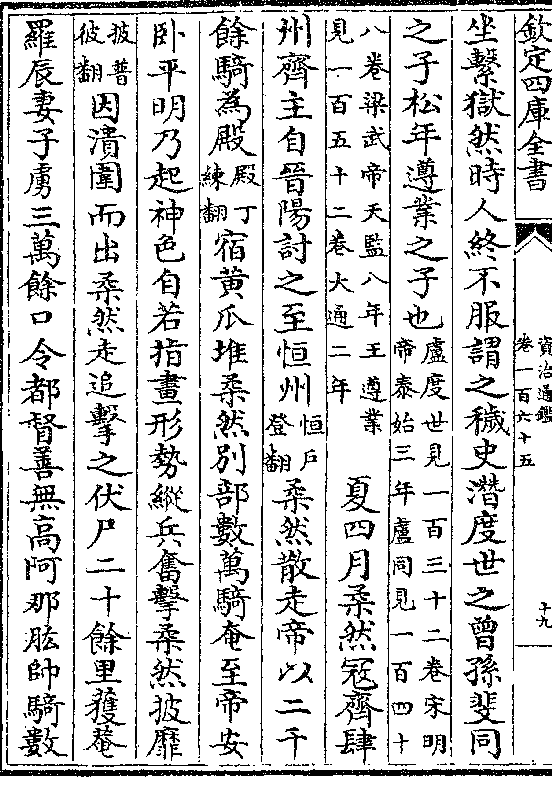 欽定四庫全書
資治通鑑
卷一百六十五
十九
坐繫獄然時人終不服謂之穢史潛度世之曾孫斐同
之子松年遵業之子也盧度世見一百三十二卷宋明帝泰始三年盧同見一百四十
八卷梁武帝天監八年王遵業見一百五十二卷大通二年 夏四月柔然冦齊肆
州齊主自晉陽討之至恒州恒户登翻柔然散走帝以二千
餘騎為殿殿丁練翻宿黄瓜堆柔然别部數萬騎奄至帝安
卧平明乃起神色自若指畫形勢縱兵奮擊柔然披靡
披普彼翻因潰圍而出柔然走追擊之伏尸二十餘里獲菴
羅辰妻子虜三萬餘口令都督善無高阿那肱帥騎數